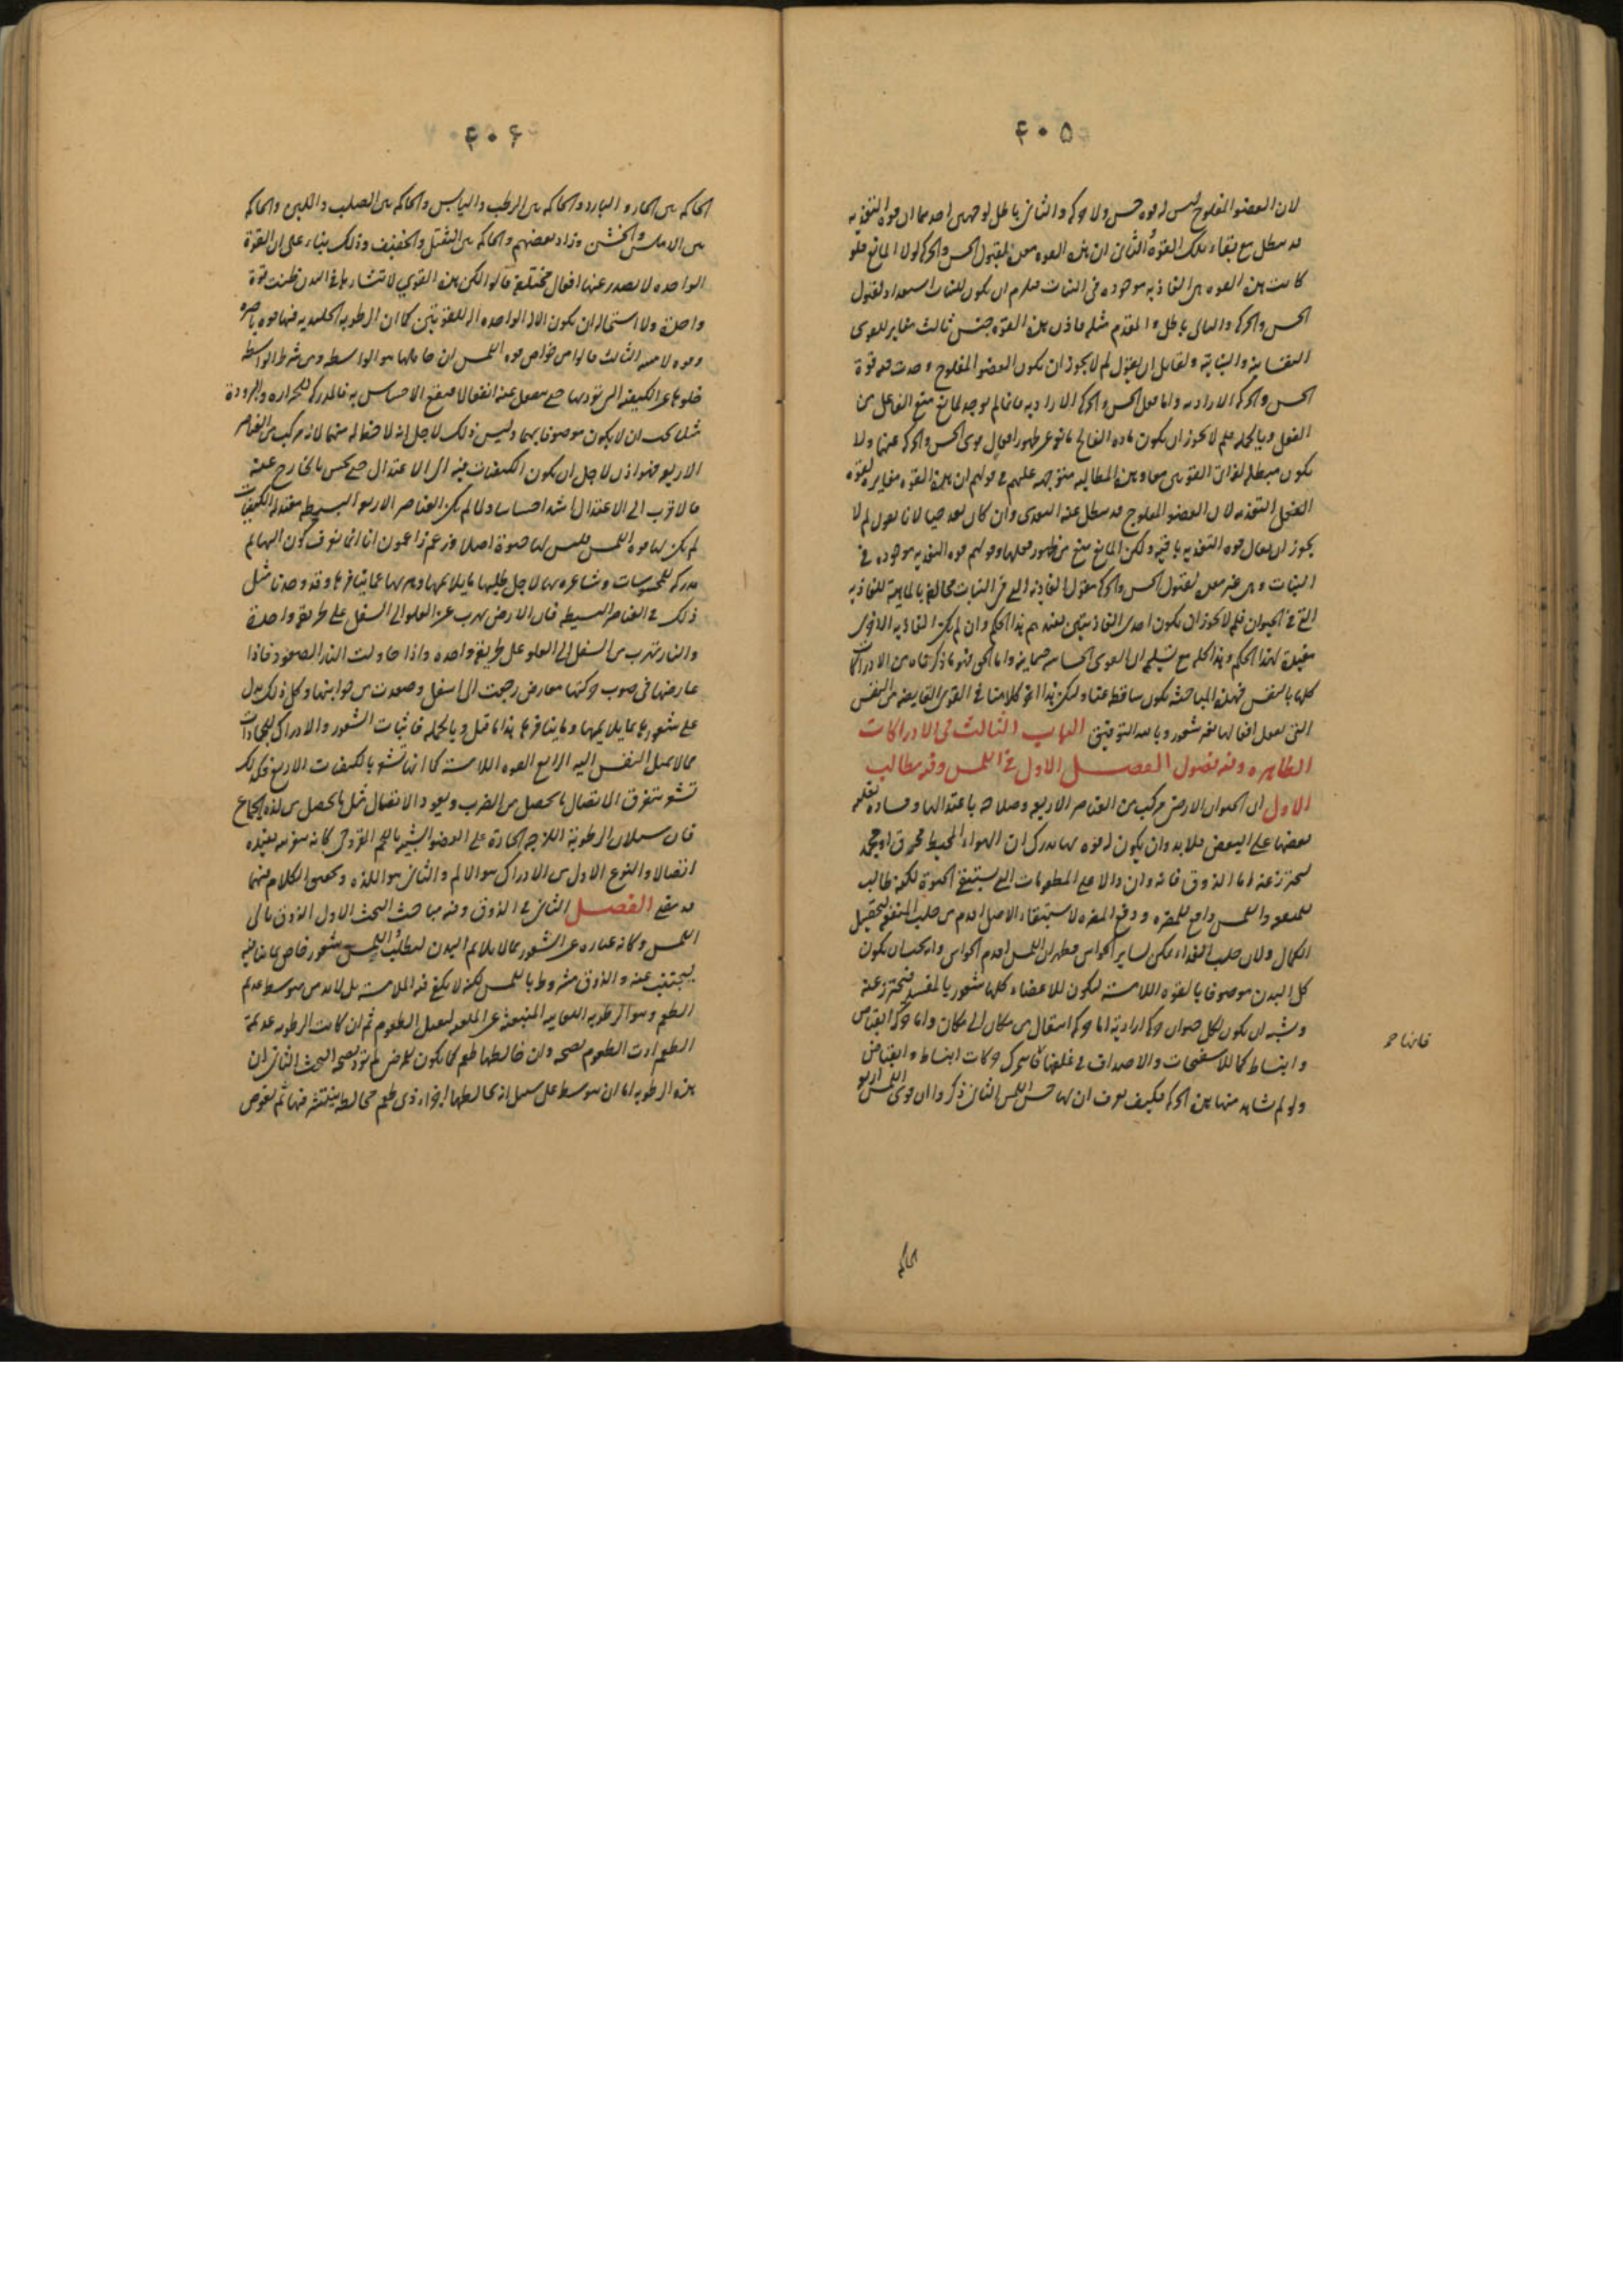 ۴۰۵
لان العضو المفلوج ليس له قوه حس ولا حركه والثانى باطل لوجهين احدهما ان قوه التغذيه
قد تبطل مع بقاء تلك القوة الثانى ان هذه القوه تعد لقبول الحس والحركه لولا المانع فلو
كانت هذه القوه هى الغاذيه موجوده فى النبات فيلزم ان يكون للنبات استعداد لقبول
الحس والحركه والتالى باطل والمقدم مثله فاذن هذه القوه جنس ثالث مغاير للقوى
النفسانيه والنباتيه ولقائل ان يقول لم لا يجوز ان يكون العضو المفلوج وجدت فيه قوة
الحس والحركه الاراديه واما فعل الحس والحركه الاراديه فانما لم يوجد لمانع منع الفاعل من
الفعل وبالجمله فلم لا يجوز ان يكون ماده الفالج مانعه عن ظهور افعال قوى الحس والحركه عنها ولا
يكون مبطله لذات القوتين معا وهذه المطالبه متوجهه عليهم فى قولهم ان هذه القوه مغايره لقوه
التغذيه لان العضو المفلوج قد يبطل عنه التغذى وان كان بعد حيا لانا نقول لم لا
يجوز ان يقال قوه التغذيه باقيه ولكن المانع منع من ظهور فعلها وقولهم قوه التغذيه موجوده فى
النبات وهى غير معده لقبول الحس والحركه فنقول الغاذيه التى فى النبات مخالفه بالماهيه للغاذيه
التى فى الحيوان فلم لا يجوز ان يكون احدى الغاذيتين معده لهذا الحكم وان لم تكن الغاذيه الاخرى
مفيدة لهذا الحكم وهذا كله مع تسليم ان القوى الحساسه جسمانيه واما الحق فهو ما ذكرناه من ان الادراكات
كلها بالنفس فهذه المباحث تكون ساقطه عنا وليكن هذا اخر كلامنا فى القوى الفايضه من النفس
التى تفعل افعالها بغير شعور وبالله التوفيق الباب الثالث فى الادراكات
الظاهره وفيه فصول الفصل الاول فى اللمس وفيه مطالب
الاول ان الحيوان الارضى مركب من العناصر الاربعه وصلاحه باعتدالها وفساده بغلبه
بعضها على البعض فلا بد وان يكون له قوه بها يدرك ان الهواء المحيط محرق او مجمد
ليتحرز عنه اما الذوق فانه وان دالا على المطعومات التى يستبقى الحيوة لكنه طالب
للمنفعه واللمس دافع للمضره ودفع المضره لاستبقاء الاصل اقدم من جلب المنفعه لتحصيل
الكمال ولان جلب الغذاء ممكن لساير الحواس فظهر ان اللمس اقدم الحواس وانه يجب ان يكون
كل البدن موصوفا بالقوه اللامسه ليكون للاعضاء كلها شعور بالمفسد فيتحرز عنه
ويشبه ان يكون لكل حيوان حركه اراديه اما حركه انتقال من مكان الى مكان واما حركه انقباض
وانبساط كما للاسفنجات والاصداف فى غلفها فانها تتحرك حركات انبساط وانقباض
فانها صح
ولو لم نشاهد منها هذه الحركه فكيف نعرف ان لها حس اللمس الثانى ذكروا ان قوى اللمس اربع
الحاكمه
۴۰۶
الحاكمه بين الحار والبارد والحاكمه بين الرطب واليابس والحاكمه بين الصلب واللين والحاكمه
بين الاملس والخشن وزاد بعضهم والحاكمه بين الثقيل والخفيف وذلك بناء على ان القوة
الواحده لا يصدر عنها افعال مختلفه قالوا لكن هذه القوى لانتشارها فى البدن ظنت قوة
واحدة ولا استحاله ان يكون الاله الواحده اله للقوتين كما ان الرطوبه الجليديه فيها قوه باصره
وقوه لامسه الثالث قالوا من خواص قوه اللمس ان حاملها هو الواسطه ومن شرط الواسطه
خلوها عن الكيفيه التى تؤديها حتى ينفعل عنها انفعالا فيقع الاحساس به فالمدركه للحراره والبرودة
مثلا يجب ان لا يكون موصوفا بهما وليس ذلك لاجل انه لا حظ له منهما لانه مركب من العناصر
الاربعه فهو اذن لاجل ان يكون الكيفيات فيه الى الاعتدال حتى يحس بالخارج عنه
فالاقرب الى الاعتدال اشد احساسا ولما لم يكن العناصر الاربعه البسيطه معتدله الكيفيات
لم يكن لها قوه اللمس فليس لها حيوة اصلا وزعم زاعمون انا انما نعرف كون البهايم
مدركه للمحسوسات وشاعره بها لاجل طلبها ما يلائمها وهربها عما ينافرها وقد وجدنا مثل
ذلك فى العناصر البسيطه فان الارض تهرب عن العلو الى السفل على طريقه واحدة
والنار تهرب من السفل الى العلو على طريقه واحده واذا حاولت النار الصعود فاذا
عارضها فى صوب حركتها معارض رجعت الى اسفل وصعدت من جوانبها وكل ذلك يدل
على شعورها بما يلايمها وما ينافرها هذا ما قيل وبالجمله فاثبات الشعور والادراك للجمادات
مما لا يميل النفس اليه الرابع القوه اللامسه كما انها تشعر بالكيفيات الاربع فكذلك
تشعر بتفرق الاتصال ما يحصل من الضرب وبعود الاتصال مثل ما يحصل من لذه الجماع
فان سيلان الرطوبة اللزجه الحارة على العضو الشبيه باللحم القروحى كانه يفيده
اتصالا والنوع الاول من الادراك هو الالم والثانى هو اللذه وتحقيق الكلام فيهما
قد مضى الفصل الثانى فى الذوق وفيه مباحث البحث الاول الذوق تالى
اللمس وكانه عباره عن الشعور بما لا يلايم البدن ليطلب اللمس شعور خاص بما ينافيه
ليجتنب عنه والذوق مشروط باللمس لكنه لا يكفى فيه الملامسه بل لا بد من متوسط عديم
الطعم وهو الرطوبه اللعابيه المنبعثه عن الملعبه لتقبل الطعوم ثم ان كانت الرطوبه عديمة
الطعم ادت الطعوم بصحه وان خالطها طعم كما يكون للمرضى لم تؤد بصحه البحث الثانى ان
هذه الرطوبه اما ان يتوسط على سبيل انه يخالطها اجزاء ذى طعم مخالطه ينتشر فيها ثم يغوص